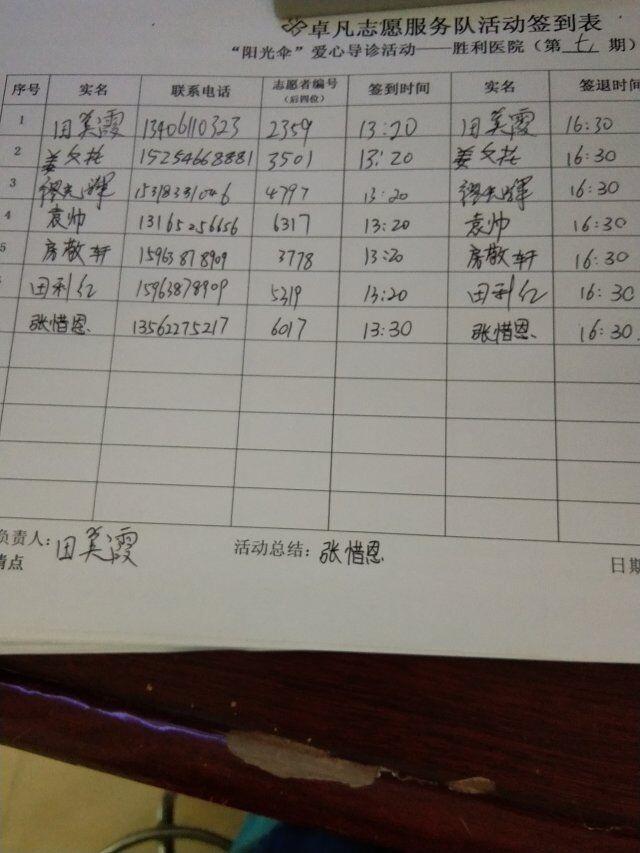 卓凡志愿服务队活动签到表
“阳光伞”爱心导诊活动——胜利医院（第七期）
序号 实名 联系电话 志愿者编号（后四位） 签到时间 实名 签退时间
1 田美霞 13406110323 2359 13:20 田美霞 16:30
2 姜文托 15254668881 3501 13:20 姜文托 16:30
3 15318331046 4797 13:20 16:30
4 袁帅 13165256656 6317 13:20 袁帅 16:30
5 房敬轩 15963878909 3778 13:20 房敬轩 16:30
田利红 15963878909 5319 13:20 田利红 16:30
张惜恩 13562275217 6017 13:30 张惜恩 16:30
负责人：田美霞 活动总结：张惜恩 日期
清点